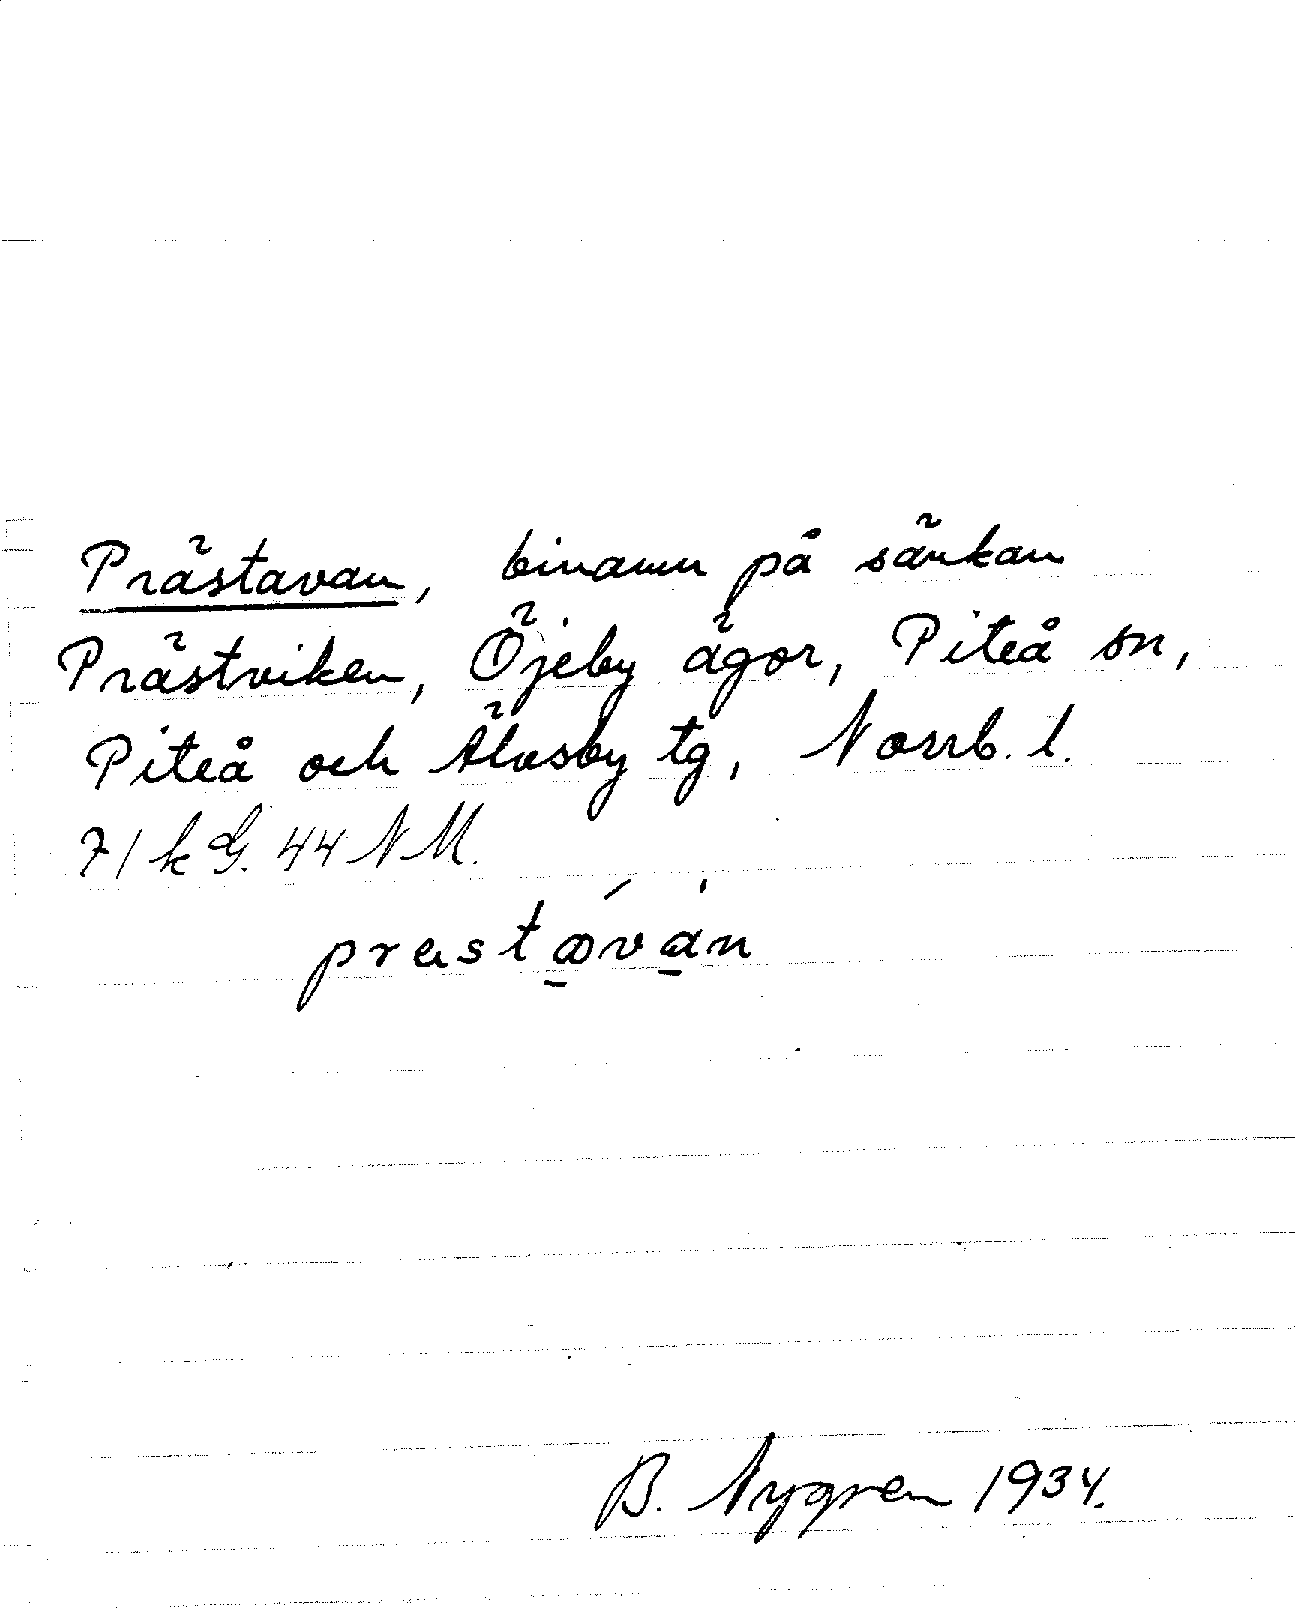 Prästavan, binamn på sänkan
Prästviken, Öjeby ägor, Piteå sn,
Piteå och Älvsby tg, Norrb. l.
71 k G. 44 NM.
prestavan
B. Nygren 1934.